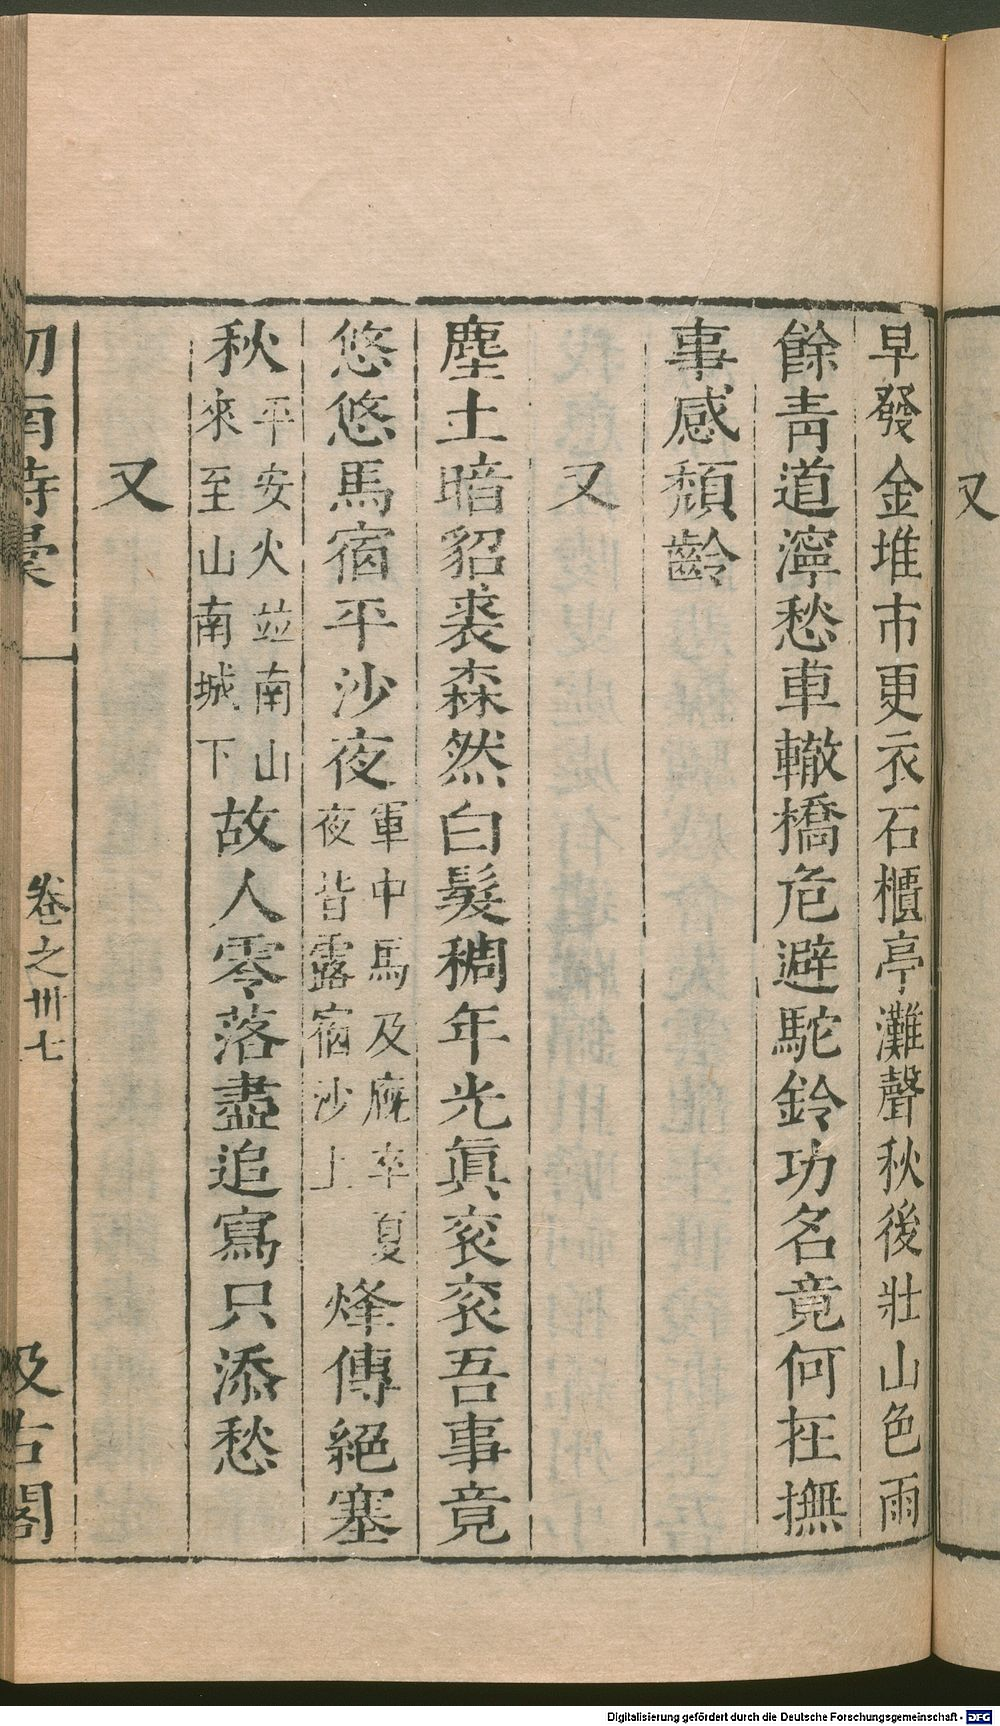 又
早發金堆市更衣石櫃亭灘聲秋後壯山色雨
餘靑道濘愁車轍橋危避駝鈴功名竟何在撫
事感頹齡
又
塵土暗貂裘森然白髮稠年光眞袞袞吾事竟
悠悠馬宿平沙夜軍中馬及廐卒夏夜皆露宿沙上烽傳絕塞
秋平安火並南山來至山南城下故人零落盡追寫只添愁
又
劒南詩稾
卷之卅七
汲古閣
Digitalisierung gefördert durch die Deutsche Forschungsgemeinschaft - DFG